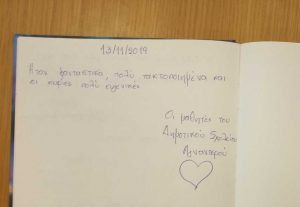 13/11/2019
Ήταν φανταστικά, πολύ τακτοποιημένα και
οι κυρίες πολύ ευγενικές
Οι μαθητές του
Δημοτικού Σχολείου